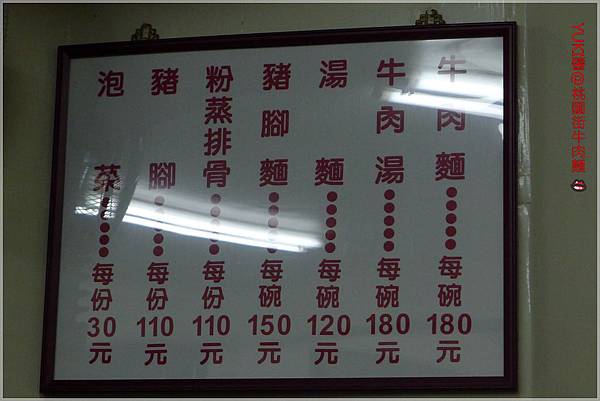 牛肉麵●●●●●每碗180元
牛肉湯●●●●●每碗180元
湯麵●●●●●每碗120元
豬腳麵●●●●●每碗150元
粉蒸排骨●●●●●每份110元
豬腳●●●●●每份110元
泡菜●●●●●每份30元
YUKI醬@桃園街牛肉麵